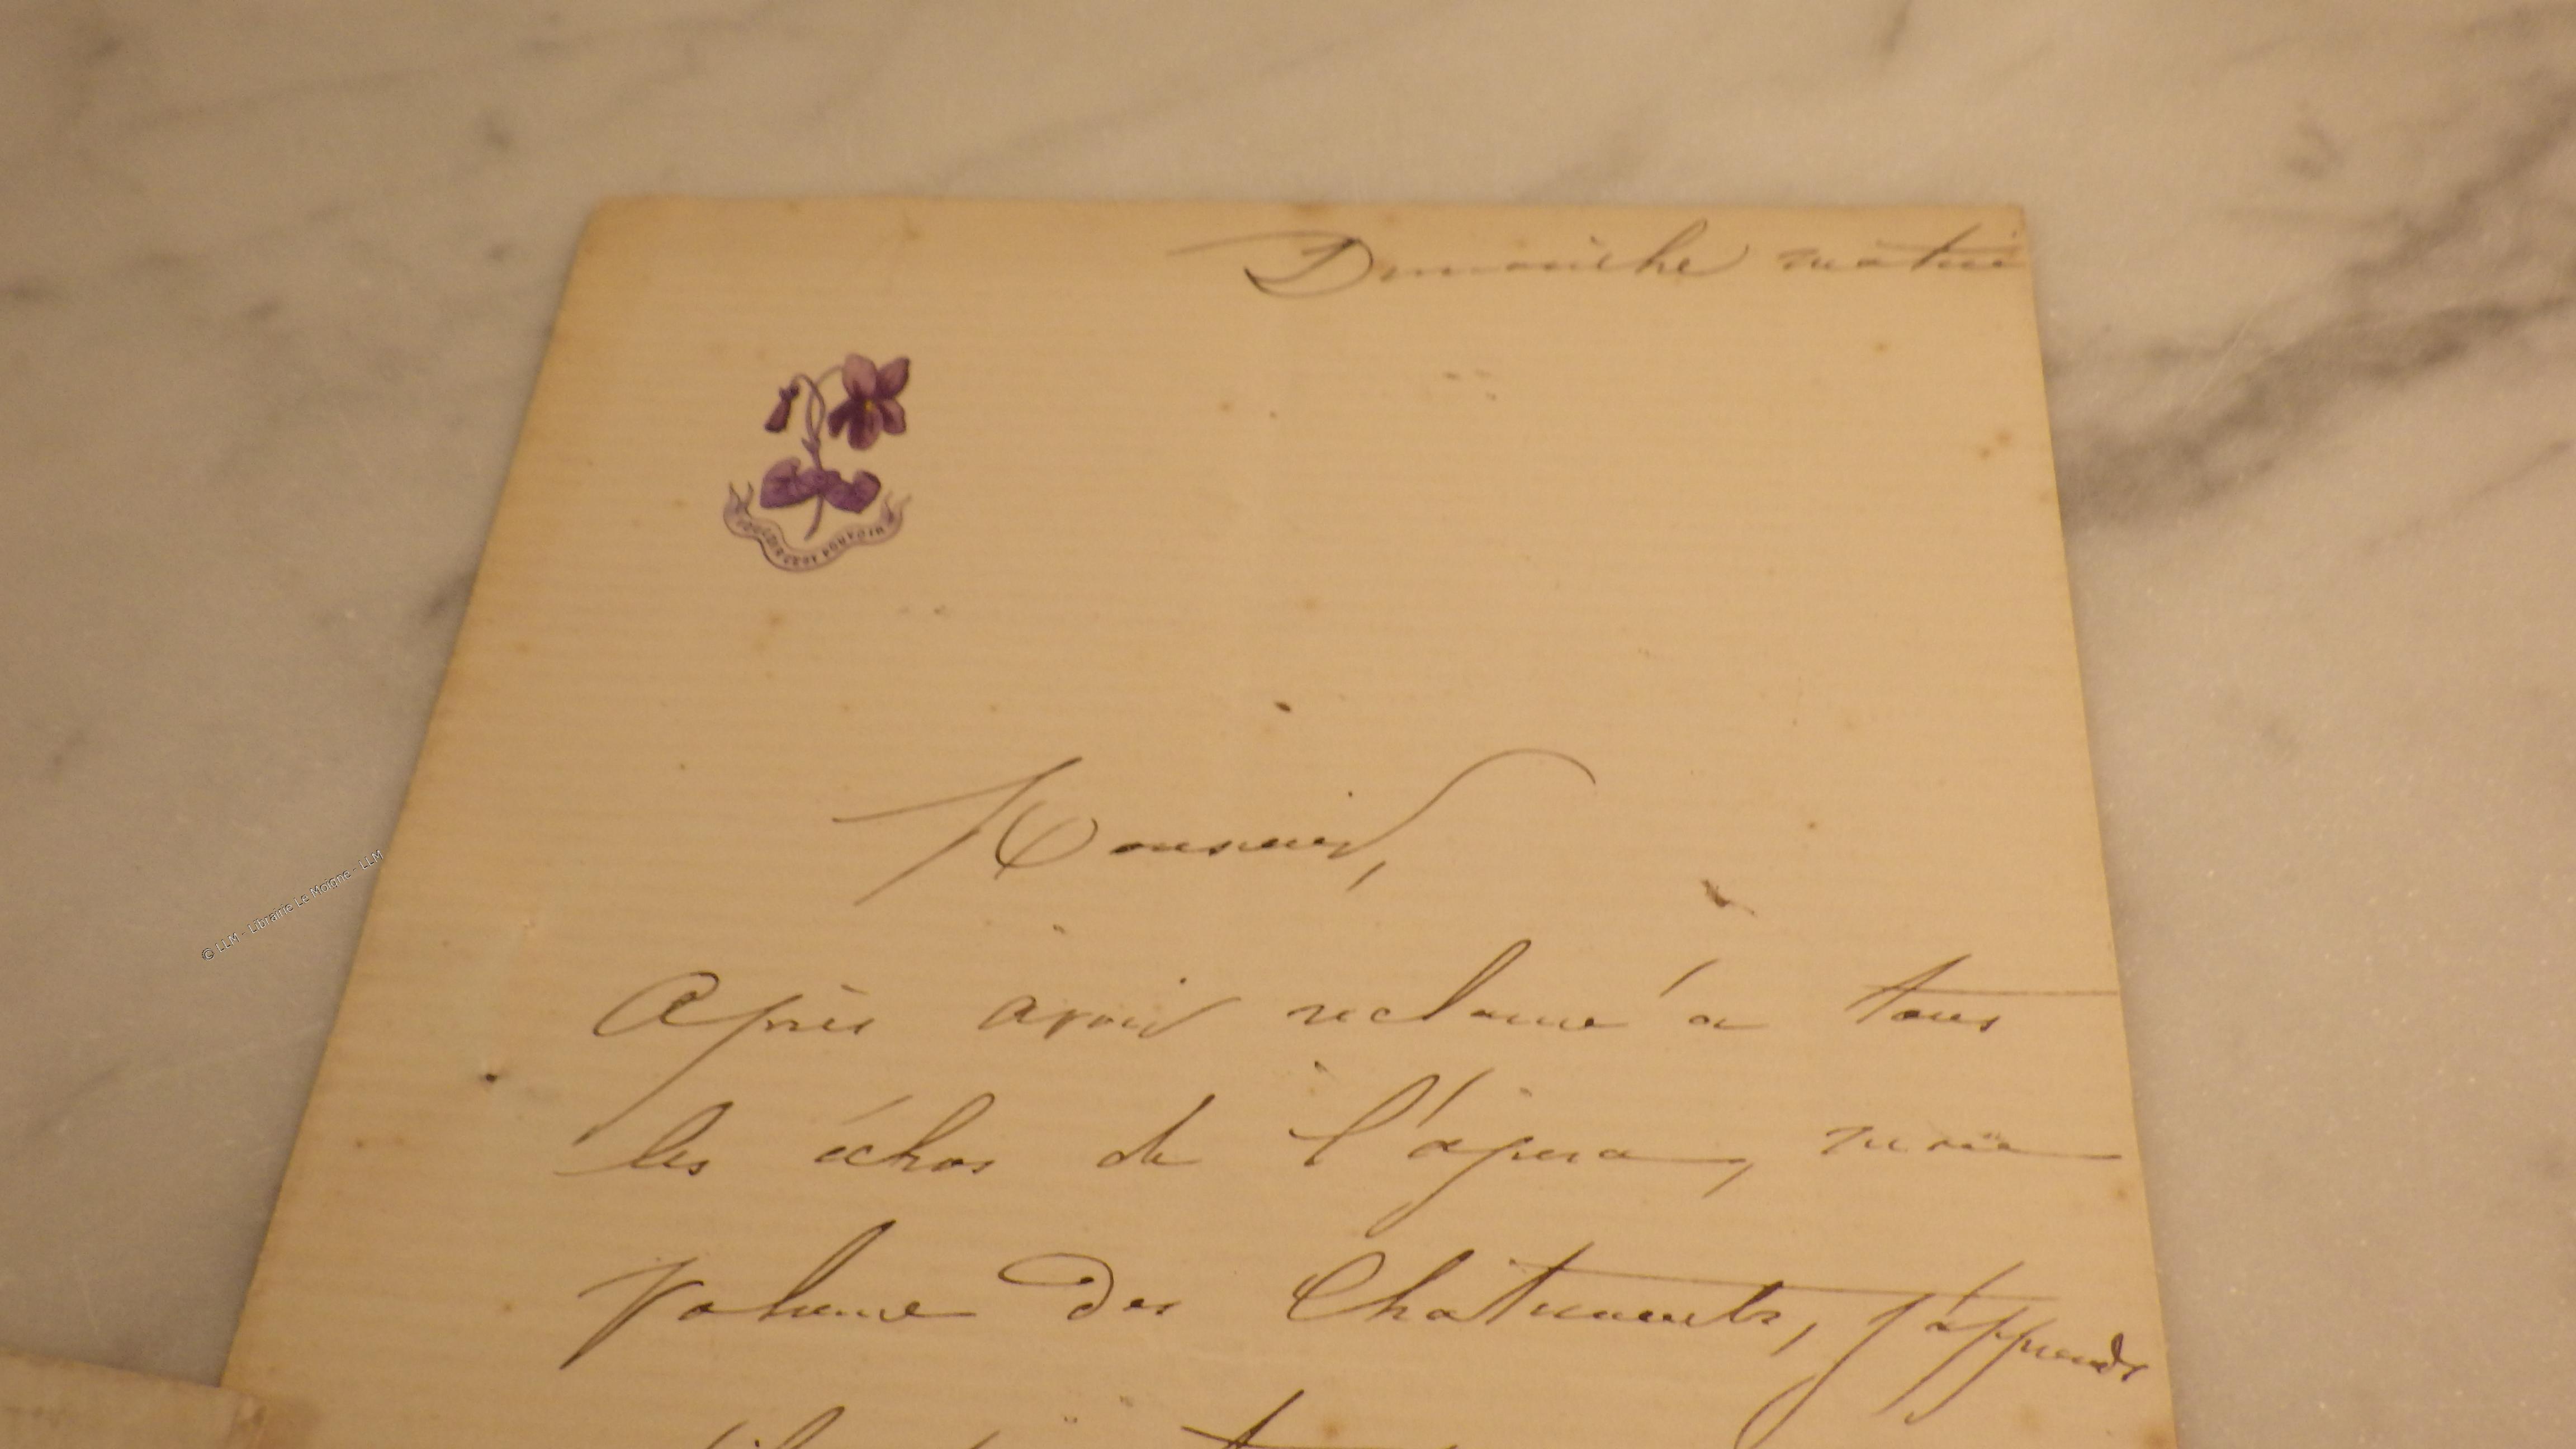 Dimanche matin
VOULOIR C'EST POUVOIR
Monsieur,
Après avoir reclamé à tous
les échos de l'opera, mon
volume des Chatiments, j'apprends
© LLM - Librairie Le Moigne - LLM